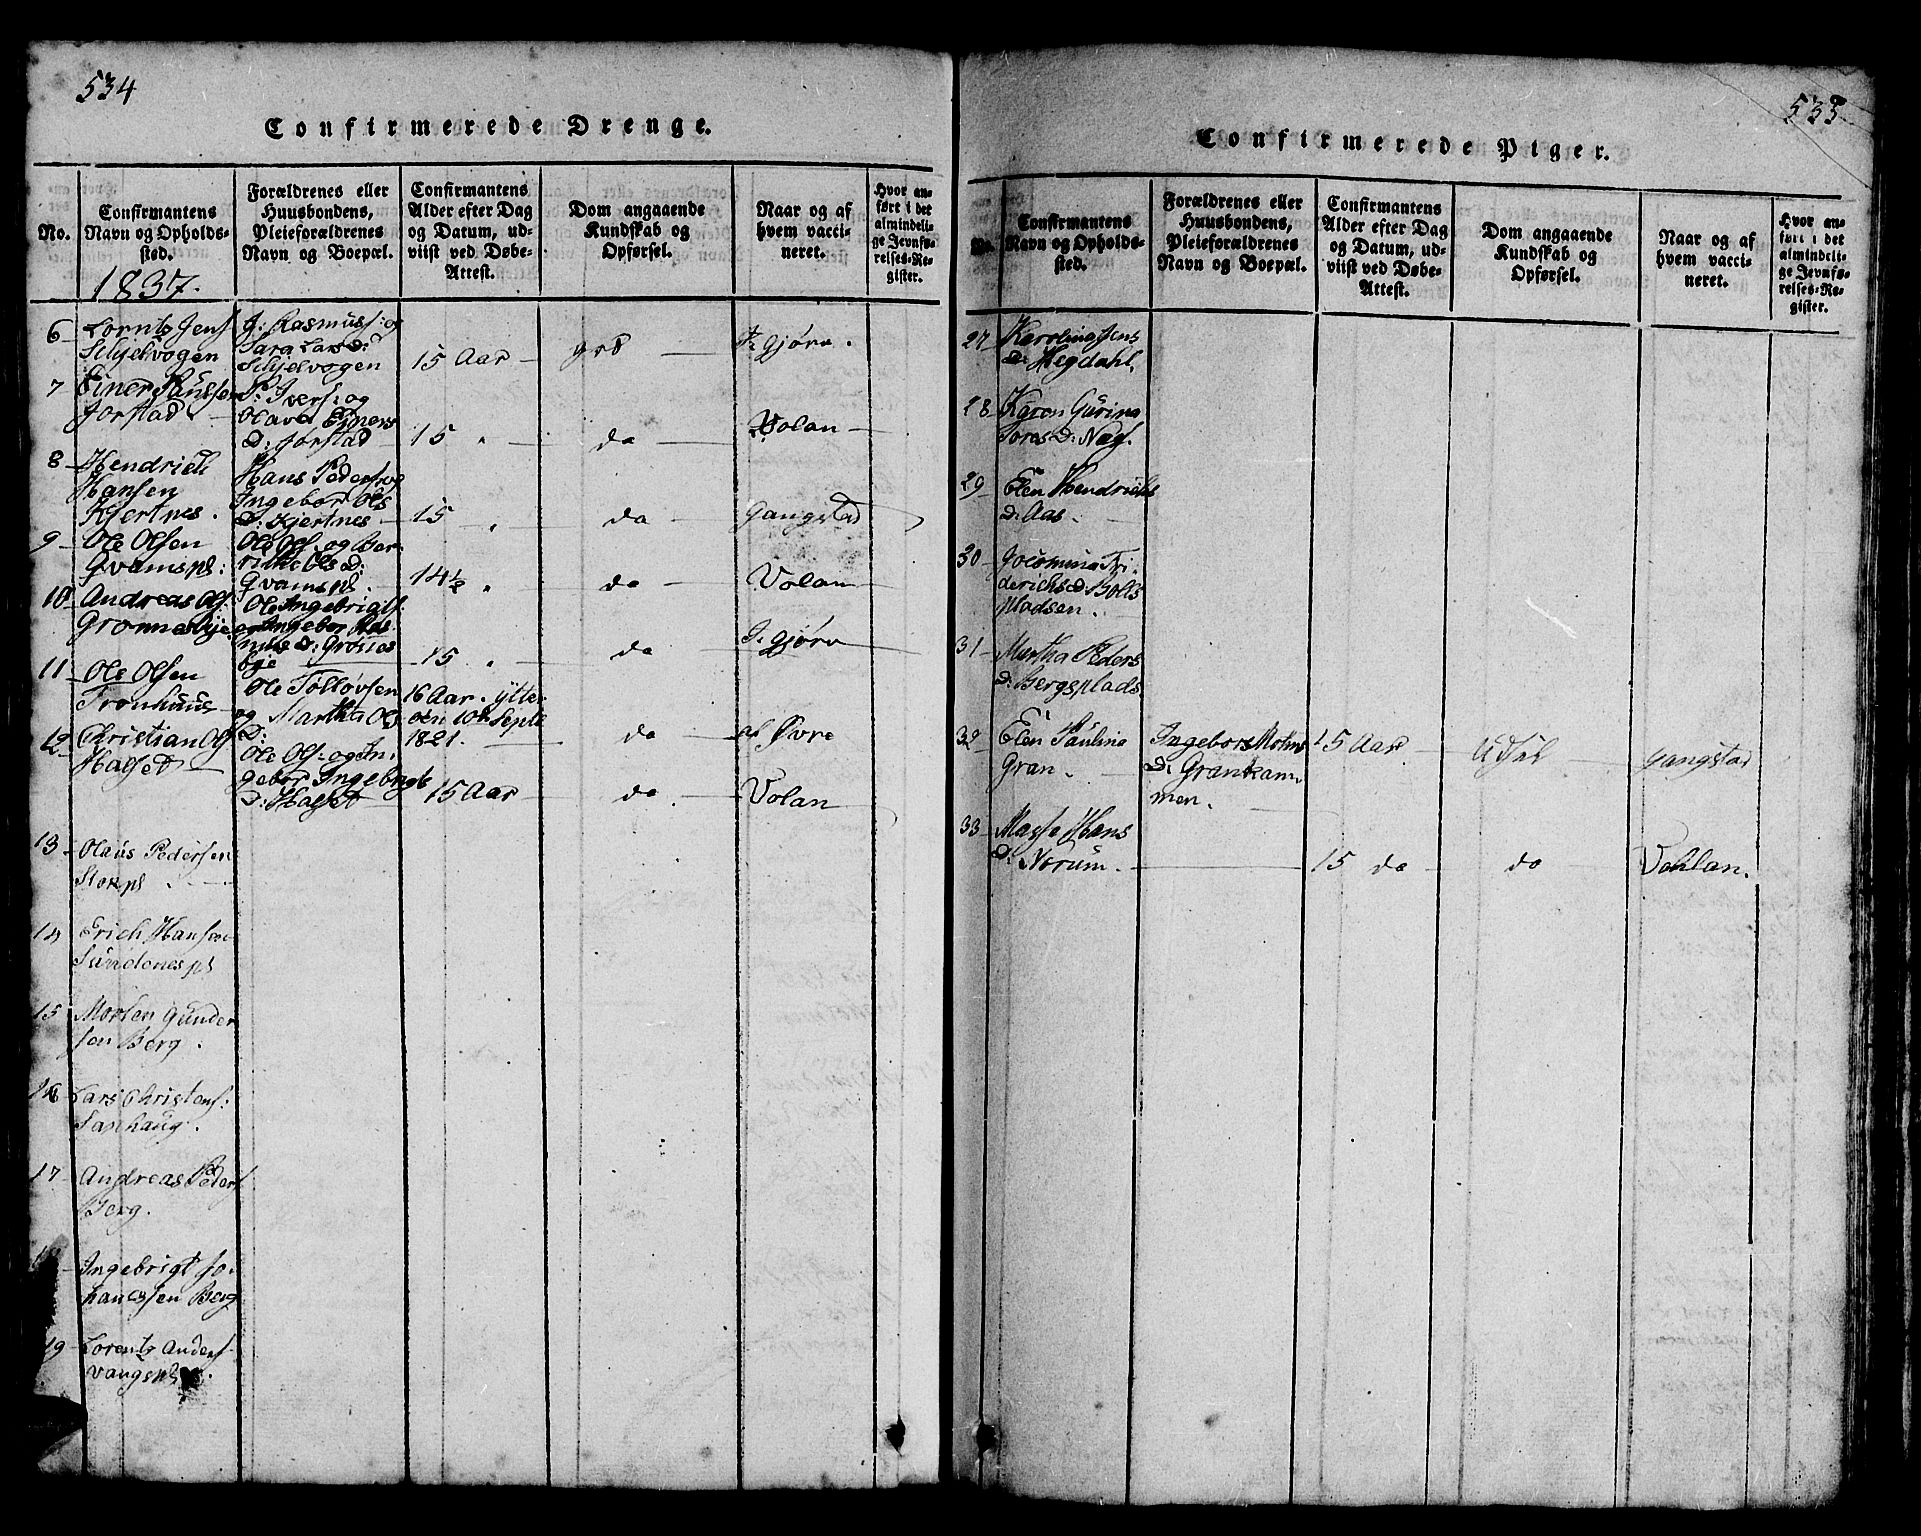 534
Confirmerede Drenge.
No.
Confirmantens
Navn og Opholds-
sted.
Forældrenes eller
Huusbondens,
Pleieforældrenes
Navn og Boepæl.
Confirmantens
Alder efter Dag
og Datum, ud-
viist ved Døbe-
Attest.
Dom angaaende
Kundskab og
Opførsel.
Naar og af
hvem vacci-
neret.
Hvor an-
ført i det
almindeli-
ge Jevnfø-
relses-Re-
gister.
1837.
6 Lorntz Jens
Schjelvogen
J: Rasmuss: og
Sara Lars d:
Schjelvogen
15 Aar
god
Gjørv.
7 Einer Paulsen
Jorstad
P. Ivers: og
Olava Einers
d: Jorstad
15 "
do
Volan
8 Hendrich
Hansen
Kjertnes.
Hans Peders: og
Ingebor Ols
d: Kjertnes
15 "
do
Gangstad
9 Ole Olsen
Qvamspl:
Ole Ols: og Ber-
rithe Ols d:
Qvamspl.
14½ "
do
Volan
10 Andreas Ols.
Grønnesbye
Ole Ingebrigts.
og Ingebor Ras-
mus d: Grønes
bye
15 "
do
J. Gjørv
11 Ole Olsen
Tronhuus
Ole Tolløvsen
og Martha Ols
d:
16 Aar. Ytter-
øen 10de Septe
1821.
do
af Øvre
12 Christian Ols
Halset
Ole Ols: og In-
gebor Ingebrigts
d: Halset
15 Aar
do
Volan
13 Olaus Pedersen
Storpl.
14 Erich Hansen
Sundnespl
15 Morten Gunder
sen Berg.
16 Lars Christens:
Saxhaug.
17 Andreas Peders
Berg.
Ingebrigt Jo-
hanessen Berg
19 Lorentz Anders
Vangspl.
535
Confirmerede Piger.
No.
Confirmantens
Navn og Opholds-
sted.
Forældrenes eller
Huusbondens,
Pleieforældrenes
Navn og Boepæl.
Confirmantens
Alder efter Dag
og Datum, ud-
viist ved Døbe-
Attest.
Dom angaaende
Kundskab og
Opførsel.
Naar og af
hvem vacci-
neret.
Hvor an-
ført i det
almindeli-
ge Jevnfø-
relses-Re-
gister.
27 Karolina Jens
d: Hegdahl.
28 Karen Gurina
Tores d: Næs.
29 Elen Hendrichs
d: Aas.
30 Jocomina Fri-
derichs d: Bolls
pladsen.
31 Martha Peders
d: Bergsplads
32 Elen Paulina
Gran.
Ingebor Mortens
d: Grankam-
men.
15 Aar
Udsøl
Gangstad
33 Masse Hans
d: Norum.
15 do
do
Vohlan.